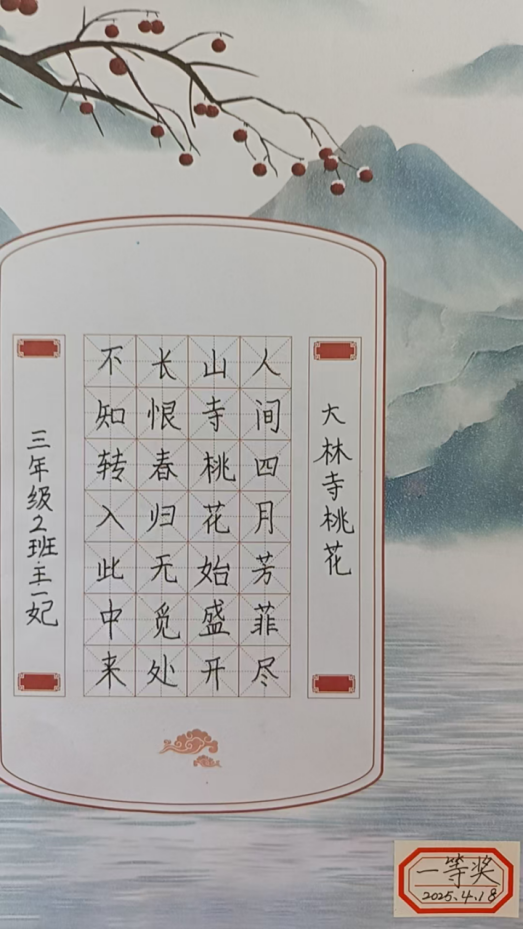 大林寺桃花
人间四月芳菲尽
山寺桃花始盛开
长恨春归无觅处
不知转入此中来
三年级2班王一妃
一等奖
2025.4.18